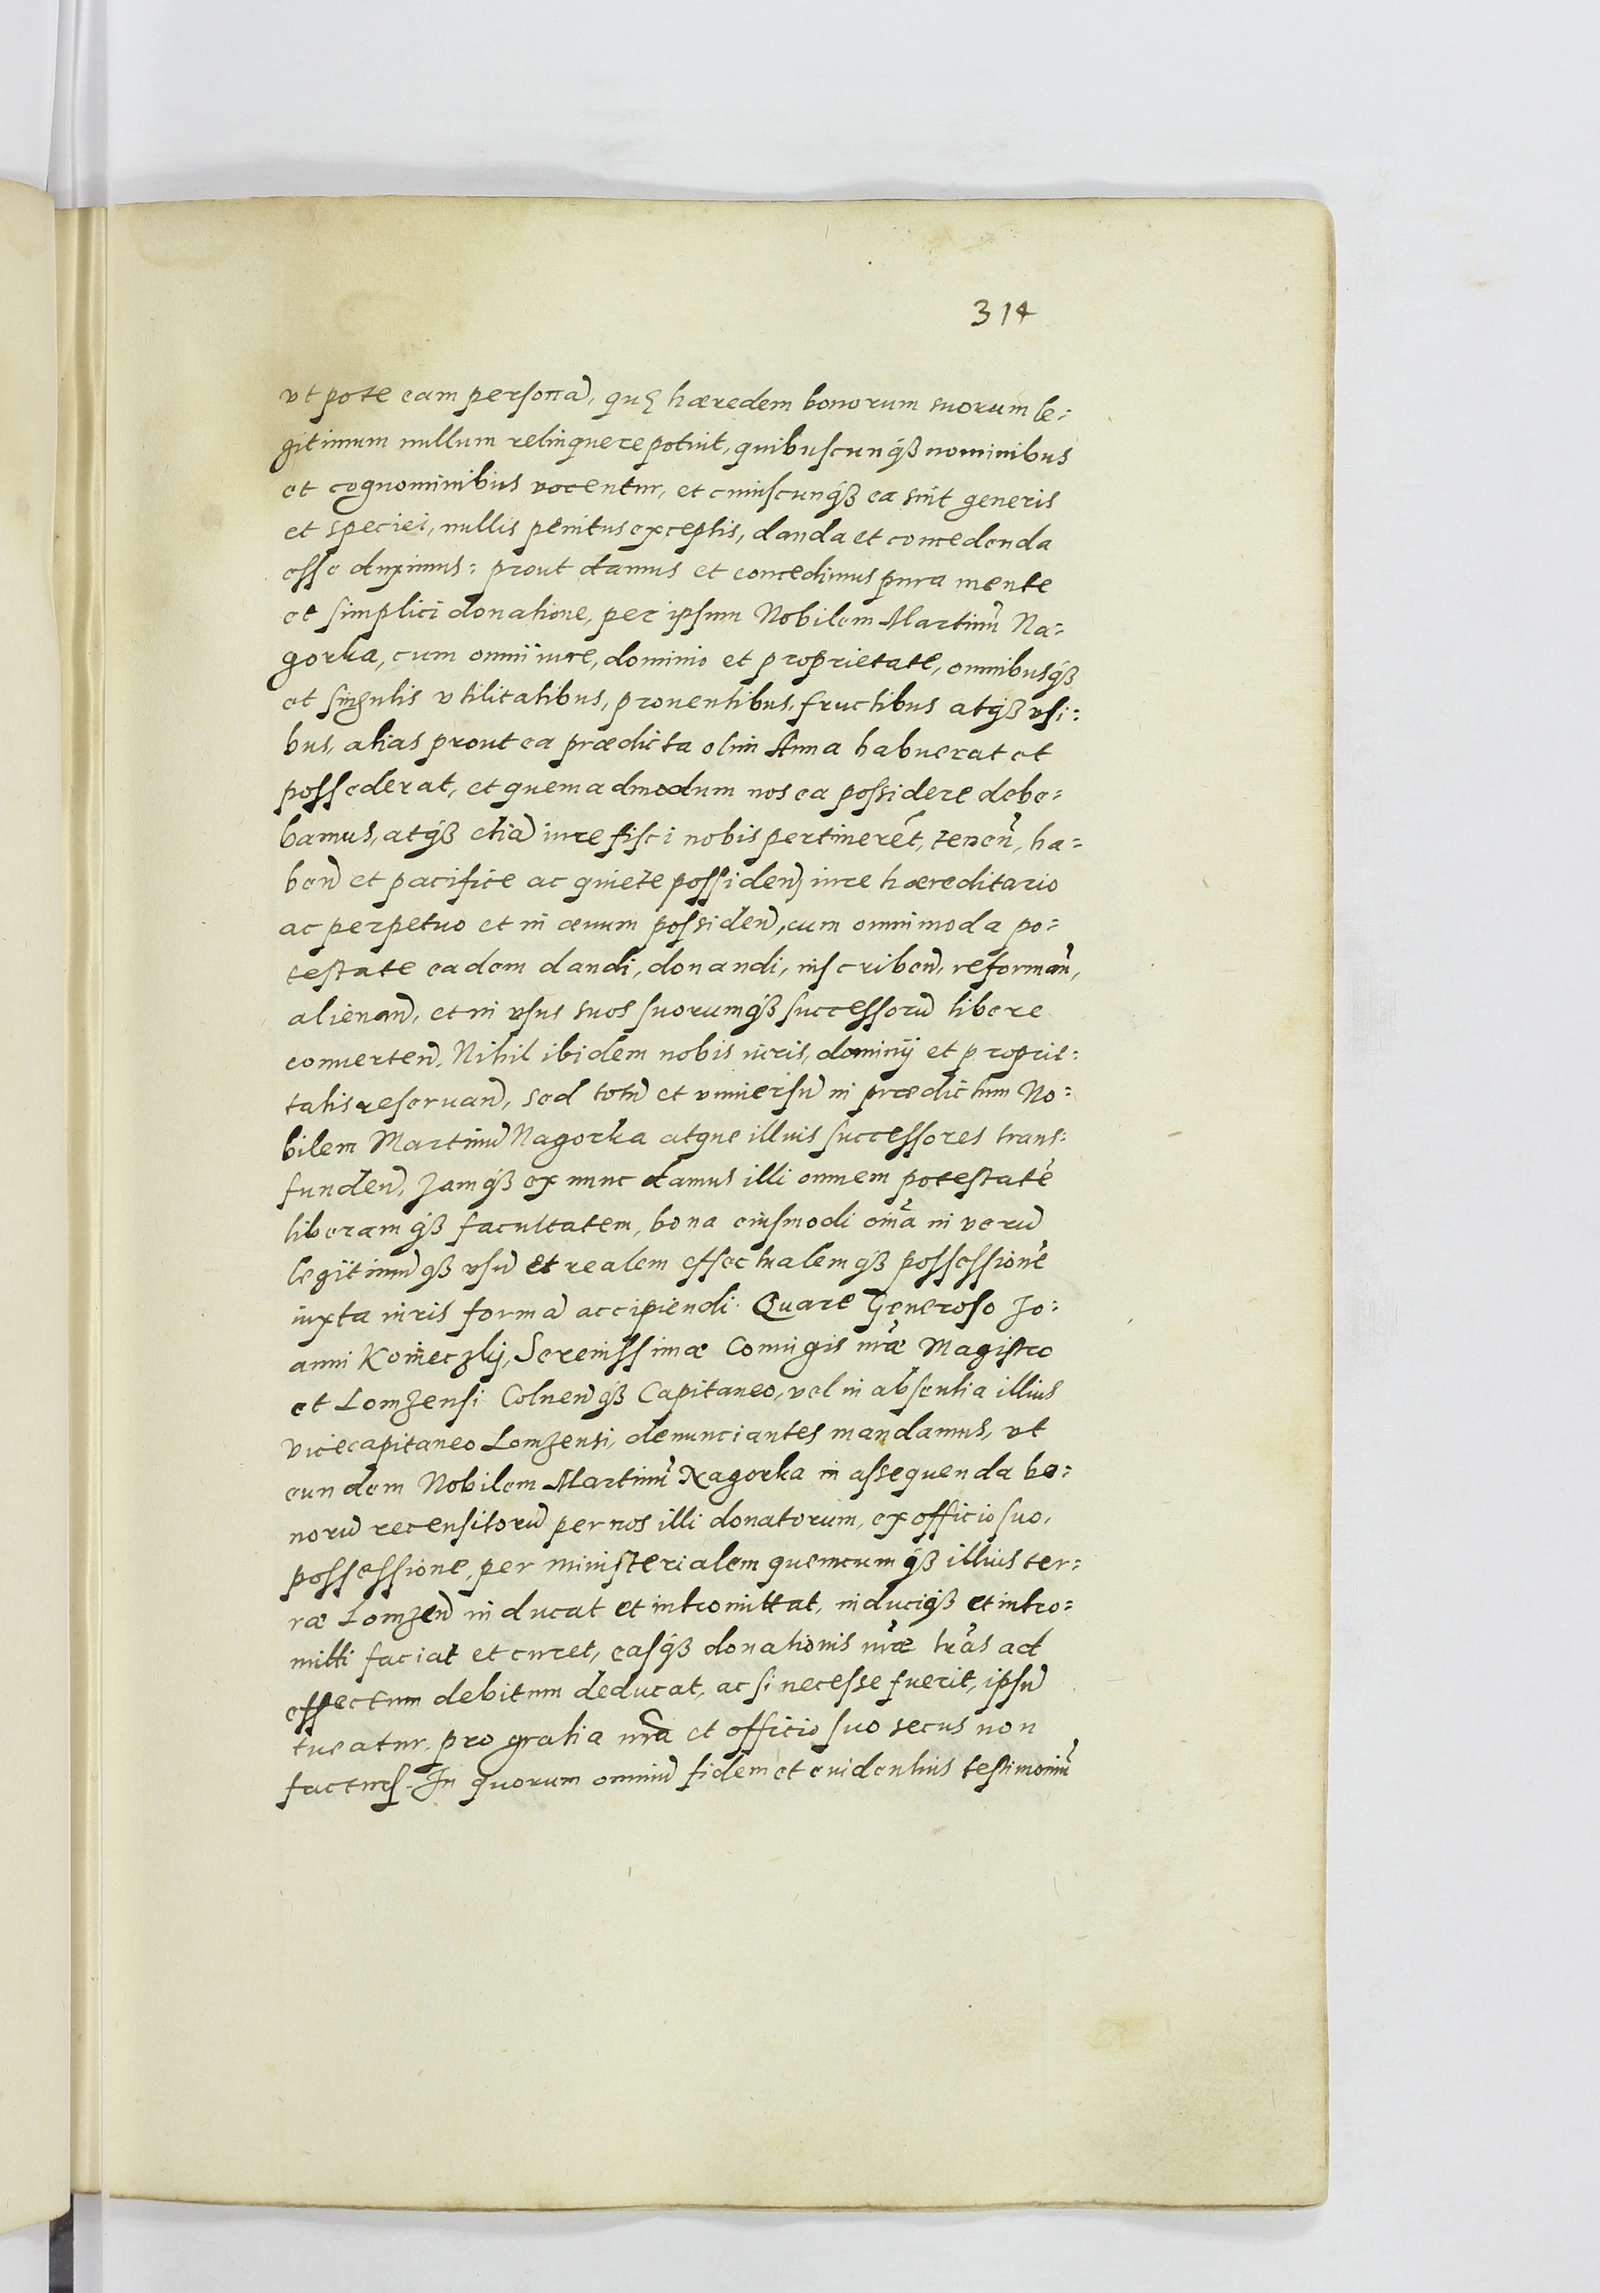 314
vt pote eam personā, quę hæredem bonorum suorum le=
gitimum nullum relinquere potuit, quibuscunqȝ nominibus
et cognominibus vocentur, et cuiuscunqȝ ea sint generis
et speciei, nullis penitus exceptis, danda et concedenda
esse duximus: prout damus et concedimus pura mente
et simplici donatione, per ipsum Nobilem Martinū Na=
gorka, cum omni iure, dominio et proprietate, omnibusqȝ
et singulis vtilitatibus, prouentibus, fructibus atqȝ vsi=
bus, alias prout ea prædicta olim Anna habuerat et
possederat, et quemadmodum nos ea possidere debe=
bamus, atqȝ etiā iure fisci nobis pertinerēt, tenen̄, ha=
ben̄ et pacifice ac quiete possiden̄, iure hæreditario
ac perpetuo et in æuum possiden̄, cum omnimoda po=
testate eadem dandi, donandi, inscriben̄, reforman̄,
alienan̄, et in vsus suos suorumqȝ successorū libere
conuerten̄, Nihil ibidem nobis iuris, dominij et proprie=
tatis reseruan̄, sed totū et vniuersū in prædictum No=
bilem Martinū Nagorka atque illius successores trans=
funden̄, Jamqȝ ex nunc damus illi omnem potestatē
liberamqȝ facultatem, bona eiusmodi om̄a in verū
legitimūqȝ vsū et realem effectualemqȝ possessionē
iuxta iuris formā accipiendi. Quare Generoso Jo=
anni Konieczkij, Serenissimæ Coniugis n̄ræ Magistro
et Lomzensi Colnen̄qȝ Capitaneo, vel in absentia illius
vicecapitaneo Lomzensi, denunciantes mandamus, vt
eundem Nobilem Martinū Nagorka in assequenda bo=
norū recensitorū per nos illi donatorum, ex officio suo,
possessione, per ministerialem quemcumqȝ illius ter=
ræ Lomzen̄ inducat et intromittat, induciqȝ et intro=
mitti faciat et curet, easqȝ donationis n̄ræ lr̄as ad
effectum debitum deducat, ac si necesse fuerit, ipsū
tueatur, pro gratia nr̄a et officio suo secus non
factur̄. In quorum omniū fidem et euidentius testimoniū